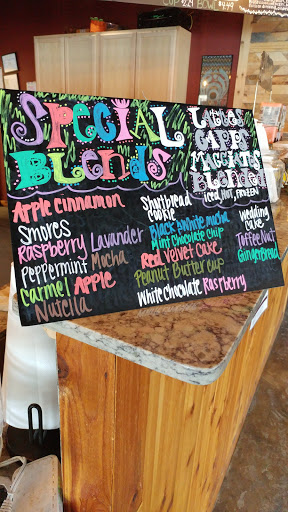 CUP $2.29 BOWL $4.49
Special
Blends
Lattes
Caffs
Maggiatos
Blended
Iced, Hot, Frozen
Apple cinnamon
Smores
Raspberry Lavander
Peppermint Mocha
Carmel Apple
Nutella
Shortbread
cookie
Black & White mocha
Mint Chocolate Chip
Red Velvet Cake
Peanut Butter cup
White chocolate Raspberry
Wedding
cake
ToffeeNut
GingerBread